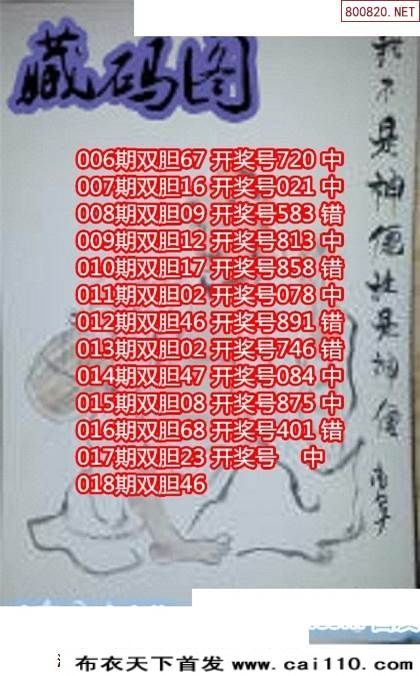 800820.NET
藏码图
我不是神仙却是神仙
006期双胆67 开奖号720 中
007期双胆16 开奖号021 中
008期双胆09 开奖号583 错
009期双胆12 开奖号813 中
010期双胆17 开奖号858 错
011期双胆02 开奖号078 中
012期双胆46 开奖号891 错
013期双胆02 开奖号746 错
014期双胆47 开奖号084 中
015期双胆08 开奖号875 中
016期双胆68 开奖号401 错
017期双胆23 开奖号 中
018期双胆46
布衣天下首发 www.cai110.com